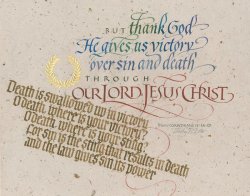 BUT thank God
He gives us victory
over sin and death
THROUGH
OUR LORD JESUS CHRIST
Death is swallowed up in victory
O death, where is your victory?
O death, where is your sting?
For sin is the sting that results in death
and the law gives sin its power